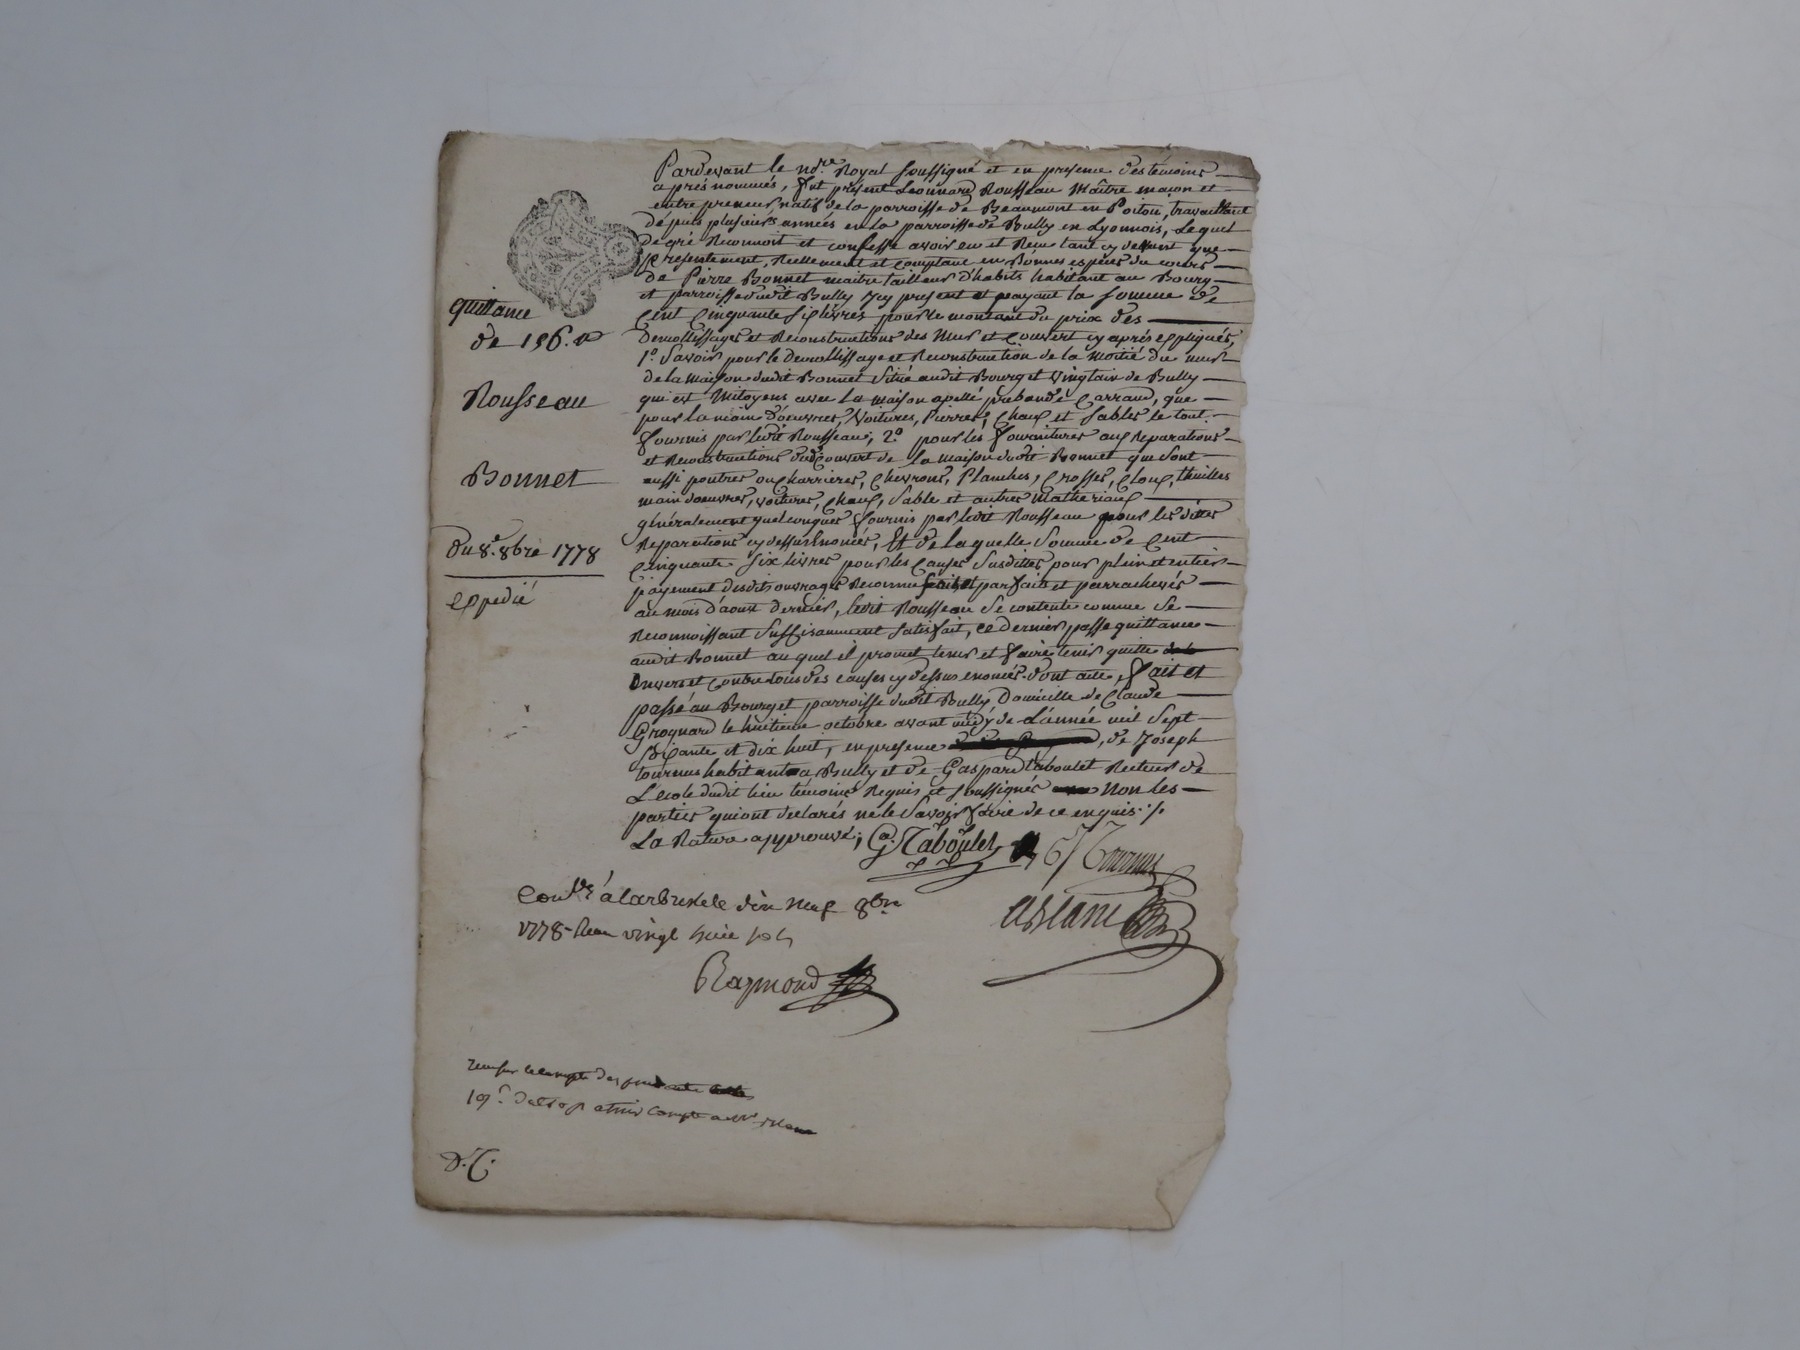 Pardevant le no.re Royal soussigné et en presence des témoins
après nommés, fut présent Leonnard Rousseau Maître maçon et
entrepreneur natif de la parroisse de Beaumont en Poitou, travaillant
dépuis plusieurs années en la parroisse de Bully en Lyonnois, Lequel
de gré Reconnoit et confesse avoir eu et Recu tant cy devant que
présentement, Réellement et comptant en Bonnes espèces du cours
de Pierre Bonnet maitre tailleur d'habits habitant au Bourg
et parroisse dudit Bully icy present et payant la somme de
Cent Cinquante six livres pour le montant du prix des
Demollissages et Reconstructions des Mur et Couvert cy après expliqués,
1.º Savoir pour le Demollissage et Reconstruction de la moitié du mur
de la maison dudit Bonnet Sitüé audit Bourg et vingtain de Bully
qui est Mitoyens avec La maison apellé prebande Carraud, que
pour la main d'oeuvres, Voitures, Pierres, Chaux et Sables le tout
fournis par ledit Rousseau; 2.º pour les fournitures aux Reparations
et Reconstructions du Couvert de la maison dudit Bonnet que sont
aussi poutres ou Charrieres, Chevrons, Planches, Crosses, Cloux, thuilles
main doeuvres, voitures, Chaux, Sable et autres Matheriaux
généralement quelconques fournis par ledit Rousseau pour les dittes
Reparations cy dessus Enoncés, Et de laquelle Somme de Cent
Cinquante Six livres pour les Causes Susdittes pour plein et entier
payement desdits ouvrages Reconnu faits et parfaits et parrachevés
au mois d'aoust dernier, ledit Rousseau Se contente comme Se
Reconnoissant Suffisamment Satisfait, ce dernier passe quittance
audit Bonnet au quel il promet tenir et faire tenir quitte
Envers et Contre tous des causes cy dessus enoncés. dont acte, fait et
passé au Bourg et parroisse dudit Bully Domicille de Claude
Grognard le huitieme octobre avant midy de L'année mil Sept
Soixante et dix huit, en presence de Joseph
tournus habitant a Bully et de Gaspard taboulet Recteur de
L'école dudit lieu témoins Requis et soussignés Non les
parties qui ont declarés ne le Savoir faire de ce enquis ./.
La Rature approuvé, G. Taboulet Tournus
Con.lé à larbresle le dix neuf 8bre
1778 Recu vingt huit sols
Raymond
quittance
de 156.#
Rousseau
Bonnet
Du 8.e 8bre 1778
expedié
D.C.